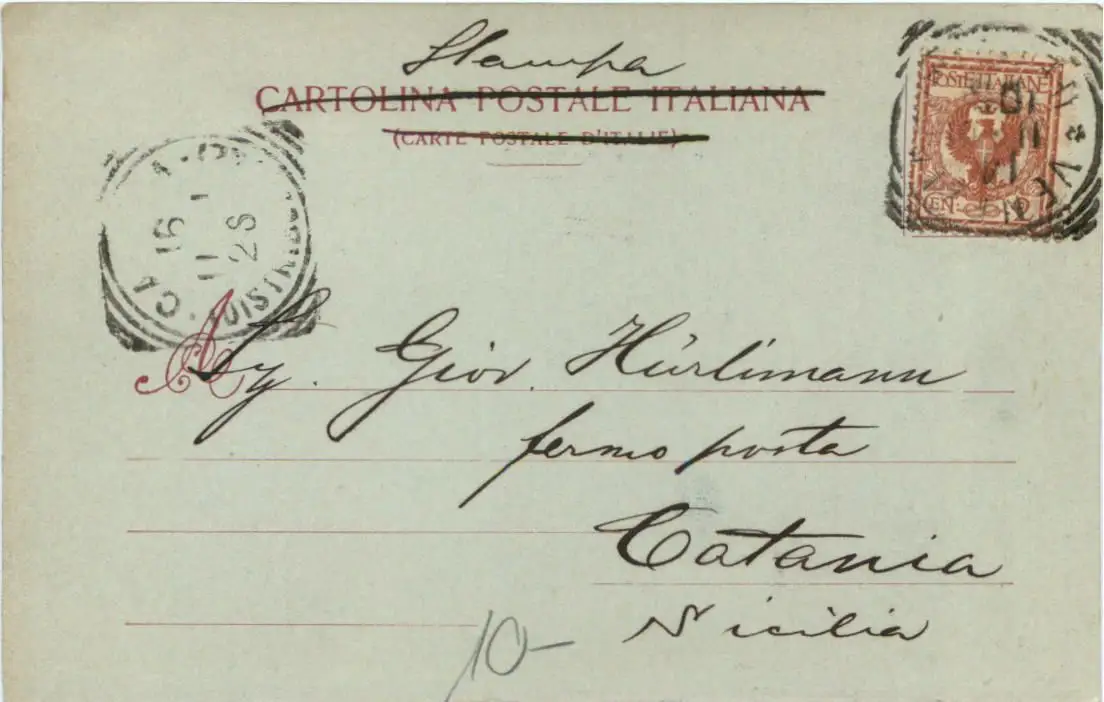 Stampa
CARTOLINA POSTALE ITALIANA
(CARTE POSTALE D'ITALIE)
POSTE ITALIANE
CEN: 2
16
1
11
2S
A
Sg. Giov. Hürlimann
fermo posta
Catania
Sicilia
10-